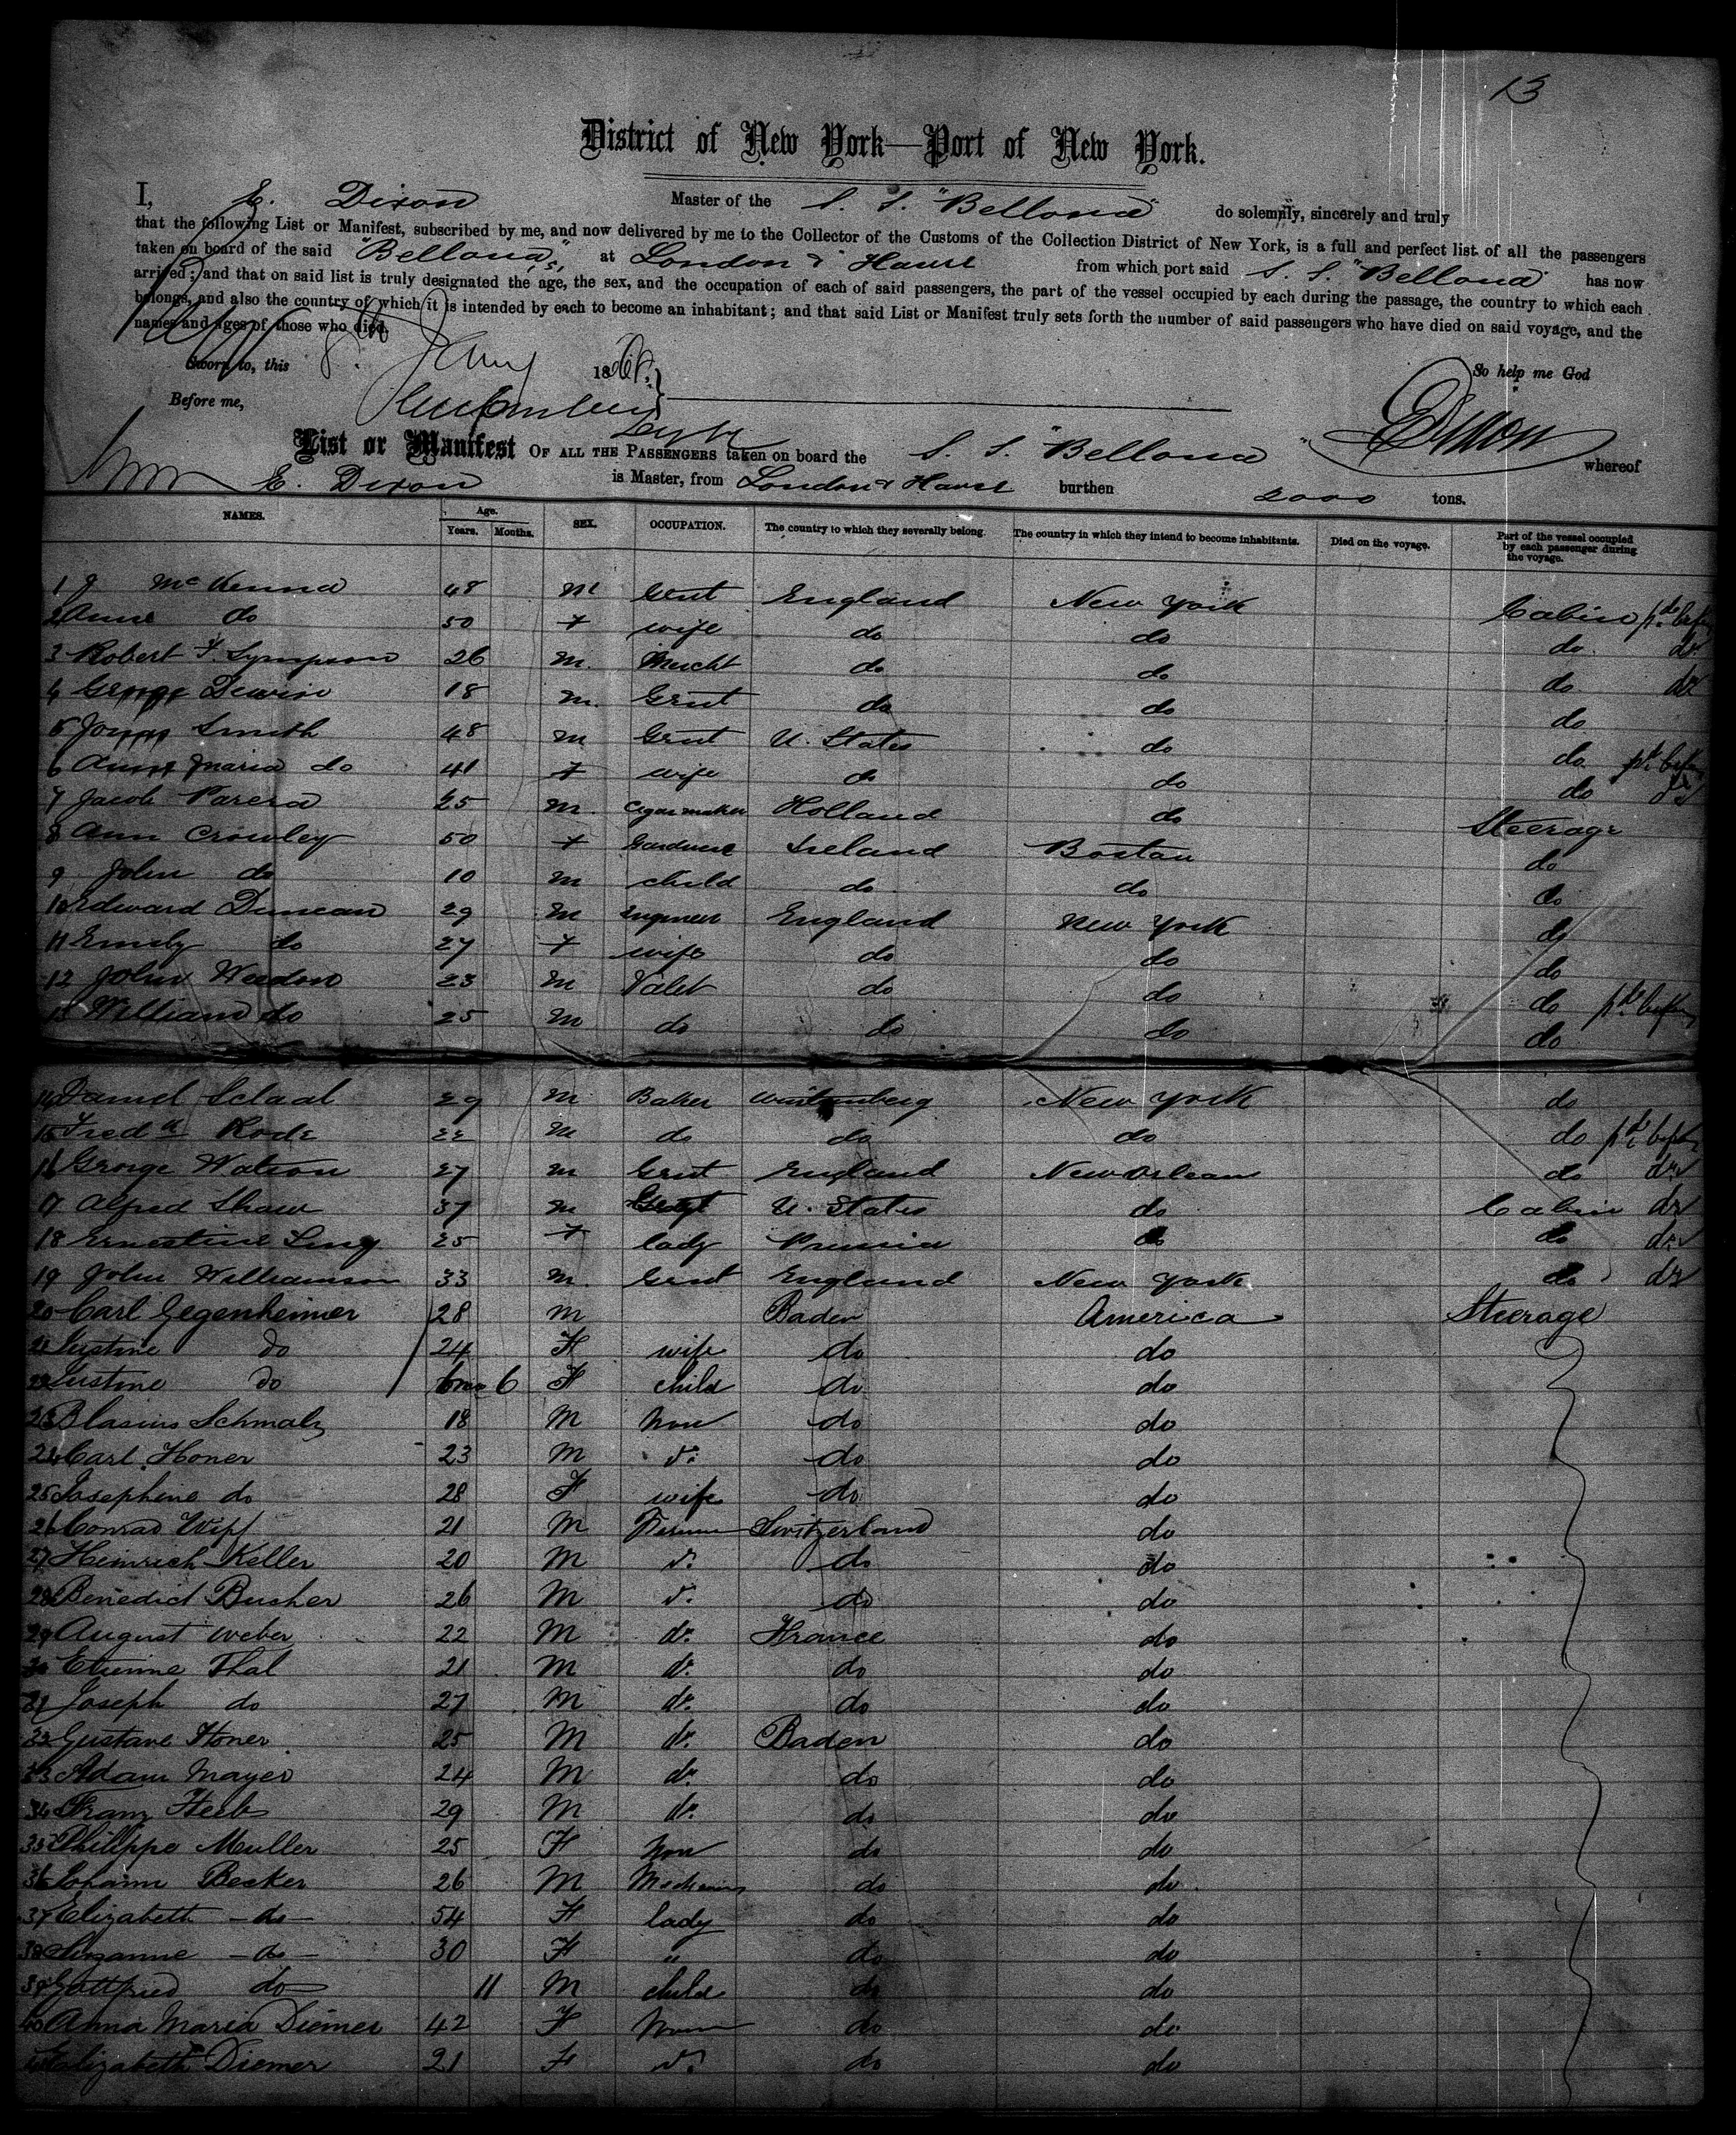 13
District of New York—Port of New York.
I, E. Dixon Master of the S. S. "Bellona" do solemnly, sincerely and truly
that the following List or Manifest, subscribed by me, and now delivered by me to the Collector of the Customs of the Collection District of New York, is a full and perfect list of all the passengers
taken on board of the said "Bellona" at London & Havre from which port said S. S. "Bellona" has now
arrived; and that on said list is truly designated the age, the sex, and the occupation of each of said passengers, the part of the vessel occupied by each during the passage, the country to which each
belongs, and also the country of which it is intended by each to become an inhabitant; and that said List or Manifest truly sets forth the number of said passengers who have died on said voyage, and the
names and ages of those who died.
Sworn to, this 8th Jany 186 So help me God
Before me, EDixon
List or Manifest OF ALL THE PASSENGERS taken on board the S. S. "Bellona" whereof
E. Dixon is Master, from London & Havre burthen 2000 tons.
NAMES. Age. Years. Months. SEX. OCCUPATION. The country to which they severally belong. The country in which they intend to become inhabitants. Died on the voyage. Part of the vessel occupied by each passenger during the voyage.
1 J McKenna 48 M Gent England New York Cabin
2 Anne do 50 F wife do do do do
3 Robert F. Sympson 26 M. Mercht do do do do
4 George 18 M. Gent do do do
5 Smith 48 M Gent U. States do do
6 Maria do 41 F wife do do do do
7 Jacob Parera 25 M. Cigar maker Holland do Steerage
8 Ann Crowley 50 F Ireland Boston do
9 John do 10 M child do do do
10 Edward Duncan 29 M Engineer England New York do
11 Emily do 27 F wife do do do
12 John Weedon 23 M Valet do do do
13 William do 25 M do do do do
14 Daniel Sclaal 29 M Baker New York do
15 Fredk Rode 22 M do do do do
16 George Watson 27 M Gent England New Orleans do do
17 Alfred Shaw 37 M U. States do Cabin do
18 Ernestine 25 F lady Prussia do do do
19 John Williamson 33 M. Gent England New York do do
20 Carl Gegenheimer 28 M Baden America Steerage
21 Justine do 24 F wife do do
22 Justine do 6 mo 6 F child do do
23 Blasius Schmalz 18 M non do do
24 Carl Honer 23 M do do do
25 Josephine do 28 F wife do do
26 Conrad Wipf 21 M Farmer Switzerland do
27 Heinrich Keller 20 M do do do
28 Benedict Busher 26 M do do do
29 August Weber 22 M do France do
30 Etienne Thal 21 M do do do
31 Joseph do 27 M do do do
32 Gustave Honer 25 M do Baden do
33 Adam Mayer 24 M do do do
34 Franz Heeb 29 M do do do
35 Philippe Muller 25 F non do do
36 Johann Becker 26 M do do
37 Elizabeth do 54 F lady do do
38 Suzanne do 30 F " do do
39 Gottfried do 11 M child do do
40 Anna Maria Diemer 42 F do do
41 Elizabeth Diemer 21 F do do do